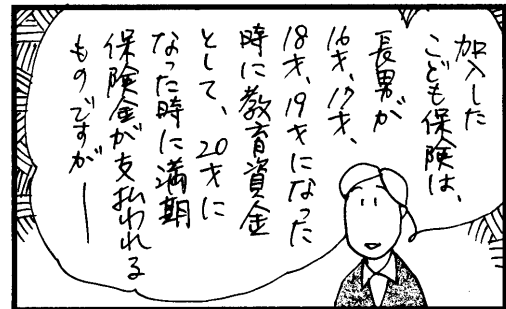 加入した
こども保険は、
長男が
16才、17才、
18才、19才になった
時に教育資金
として、20才に
なった時に満期
保険金が支払われる
ものですが──